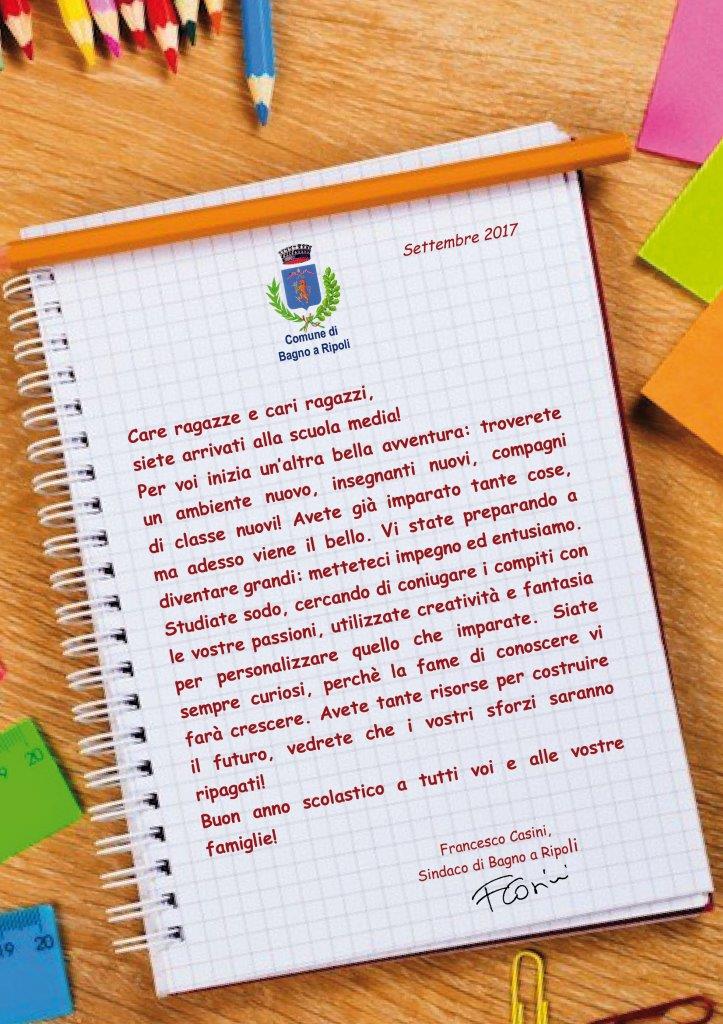 Settembre 2017
Comune di
Bagno a Ripoli
Care ragazze e cari ragazzi,
siete arrivati alla scuola media!
Per voi inizia un'altra bella avventura: troverete
un ambiente nuovo, insegnanti nuovi, compagni
di classe nuovi! Avete già imparato tante cose,
ma adesso viene il bello. Vi state preparando a
diventare grandi: metteteci impegno ed entusiamo.
Studiate sodo, cercando di coniugare i compiti con
le vostre passioni, utilizzate creatività e fantasia
per personalizzare quello che imparate. Siate
sempre curiosi, perchè la fame di conoscere vi
farà crescere. Avete tante risorse per costruire
il futuro, vedrete che i vostri sforzi saranno
ripagati!
Buon anno scolastico a tutti voi e alle vostre
famiglie!
Francesco Casini,
Sindaco di Bagno a Ripoli
FCasini
9 20
19 20